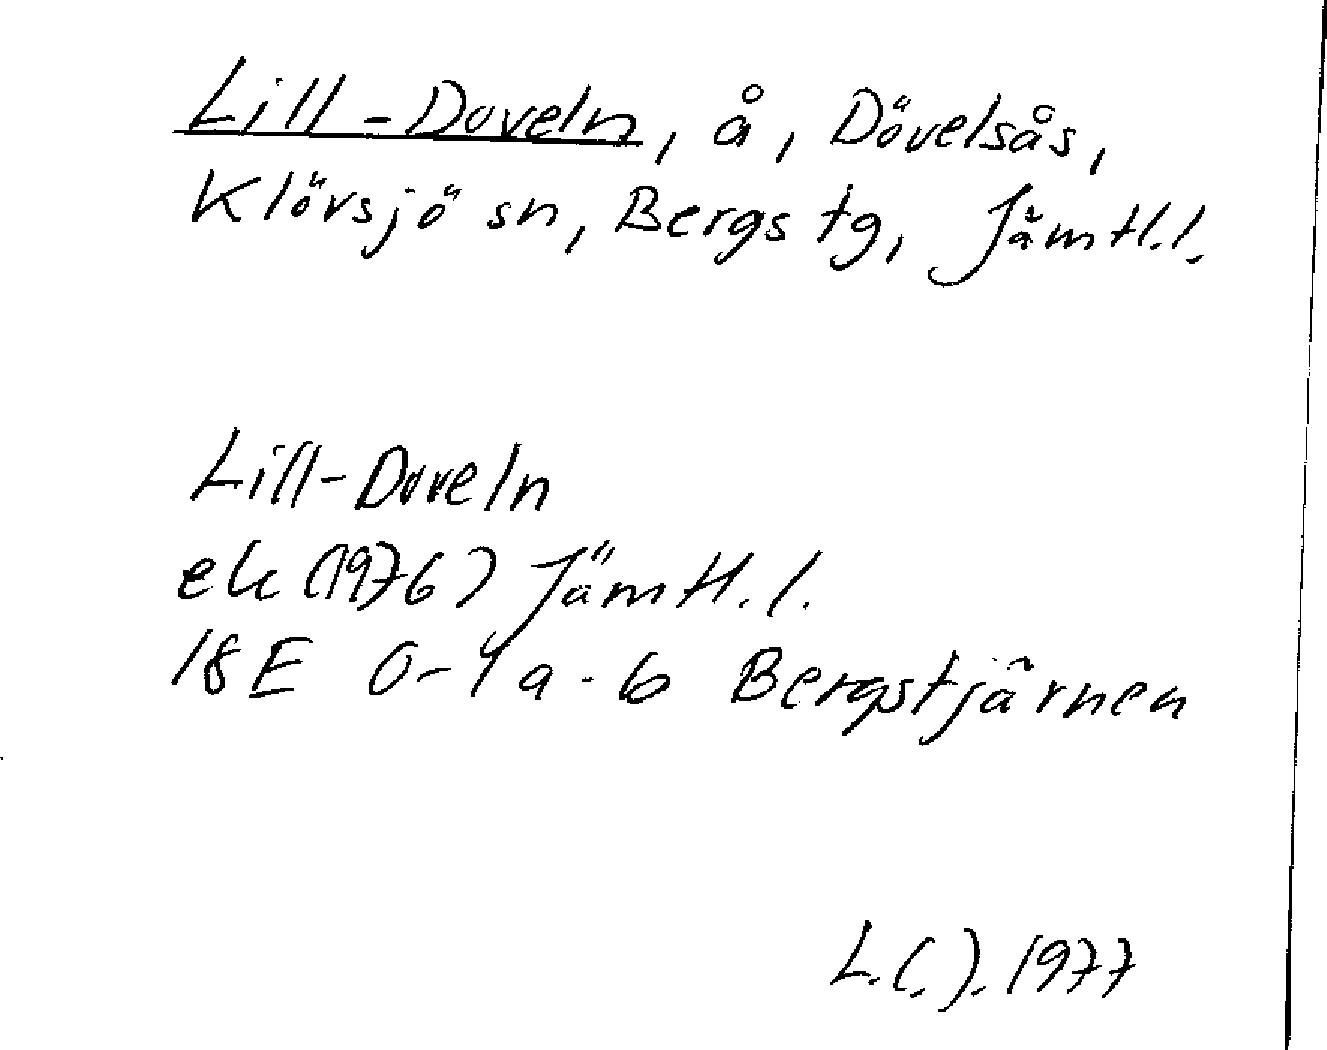 Lill-Doveln, å, Dövelsås,
Klövsjö sn, Bergs tg, Jämtl.l.
Lill-Doveln
ek (1976) Jämtl.l.
18E 0-1 a-b Bergstjärnen
L.(.). 1977